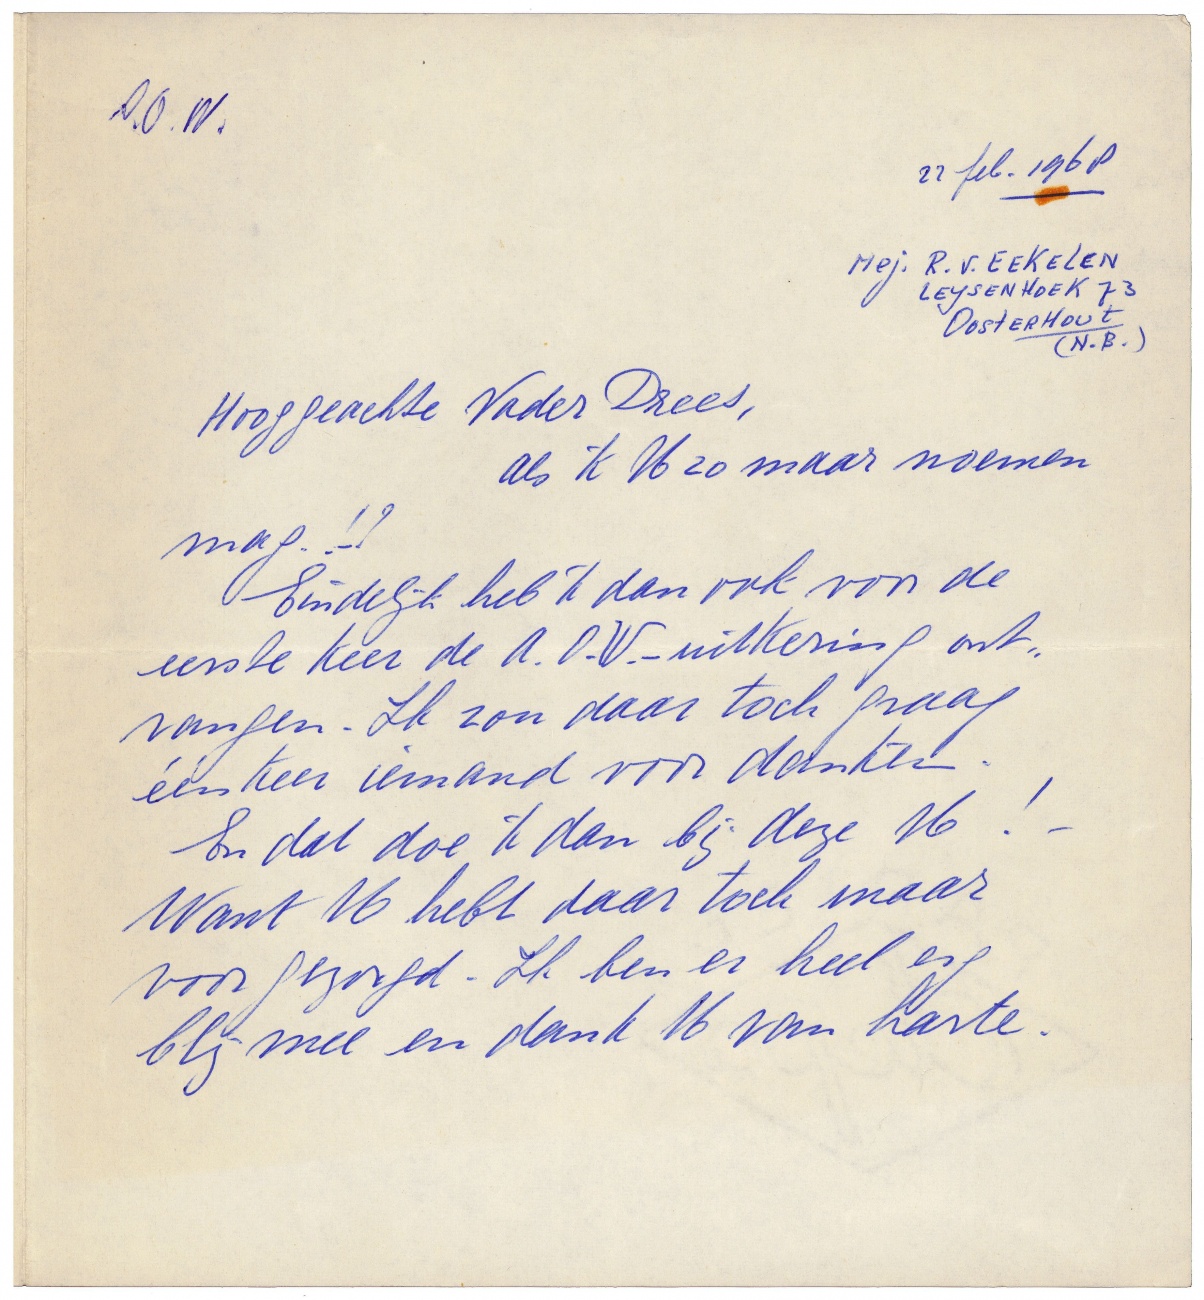 A.O.W.
22 feb. 1968
Mej. R. v. EEKELEN
LEYSENHOEK 73
OOSTERHOUT
(N.B.)
Hooggeachte Vader Drees,
als ik U zo maar noemen
mag. !?
Eindelijk heb ik dan ook voor de
eerste keer de A.O.W.-uitkering ont-
vangen. Ik zou daar toch graag
één keer iemand voor danken.
En dat doe ik dan bij deze U ! -
Want U hebt daar toch maar
voor gezorgd. Ik ben er heel erg
blij mee en dank U van harte.